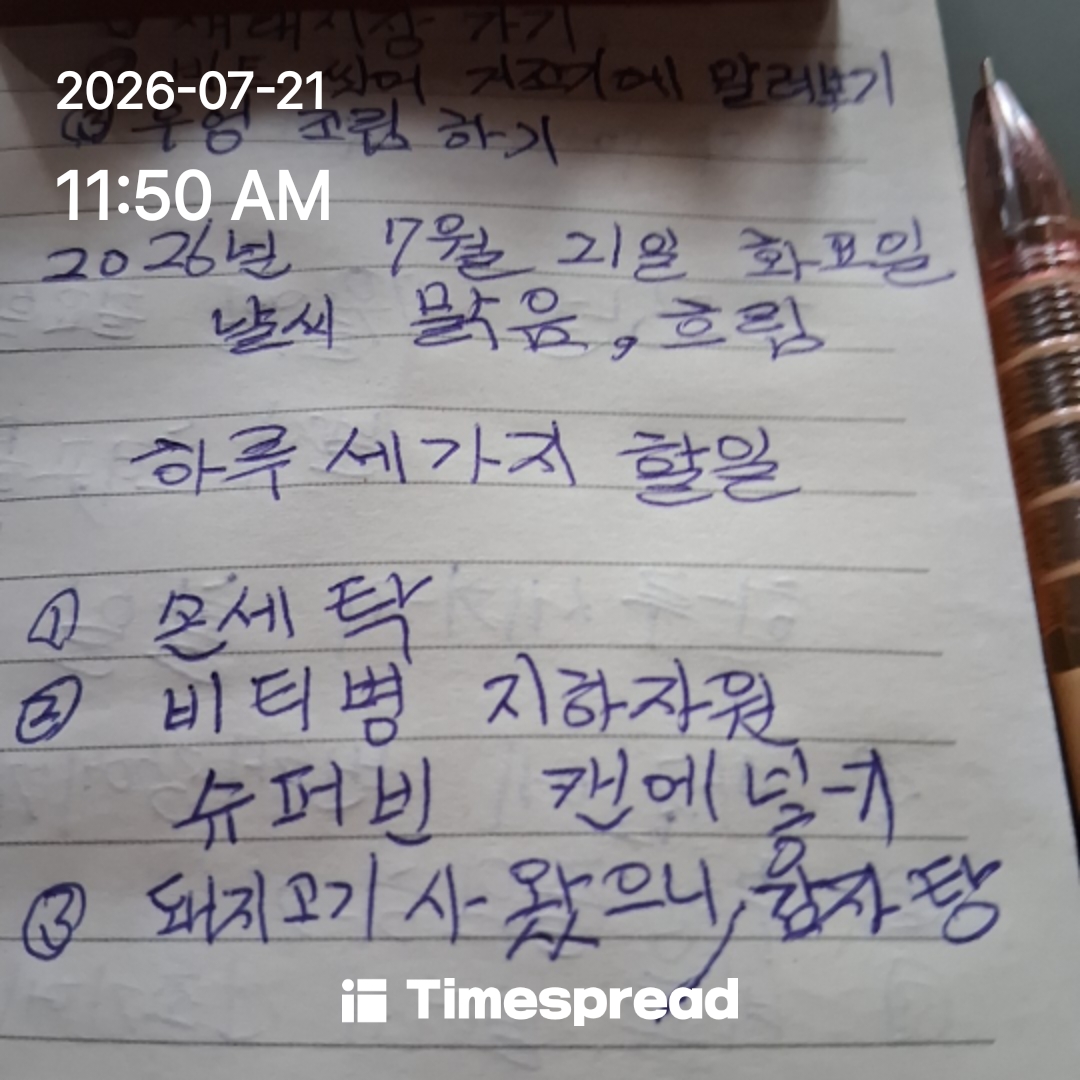 재래시장 가기
2026-07-21
씻어 건조기에 말려보기
③ 우엉 조림 하기
11:50 AM
2026년 7월 21일 화요일
날씨 맑음, 흐림
하루 세가지 할일
① 손세탁
② 비티병 지하자원
슈퍼빈 캔에 넣기
③ 돼지고기 사왔으니, 감자탕
Timespread